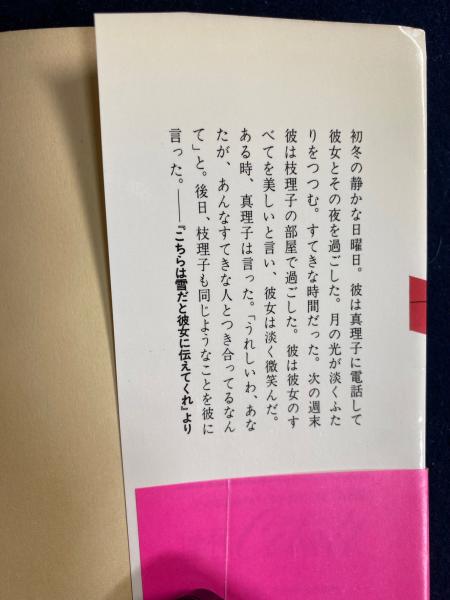 初冬の静かな日曜日。彼は真理子に電話して
彼女とその夜を過ごした。月の光が淡くふた
りをつつむ。すてきな時間だった。次の週末
彼は枝理子の部屋で過ごした。彼は彼女のす
べてを美しいと言い、彼女は淡く微笑んだ。
ある時、真理子は言った。「うれしいわ、あな
たが、あんなすてきな人とつき合ってるなん
て」と。後日、枝理子も同じようなことを彼に
言った。──『こちらは雪だと彼女に伝えてくれ』より